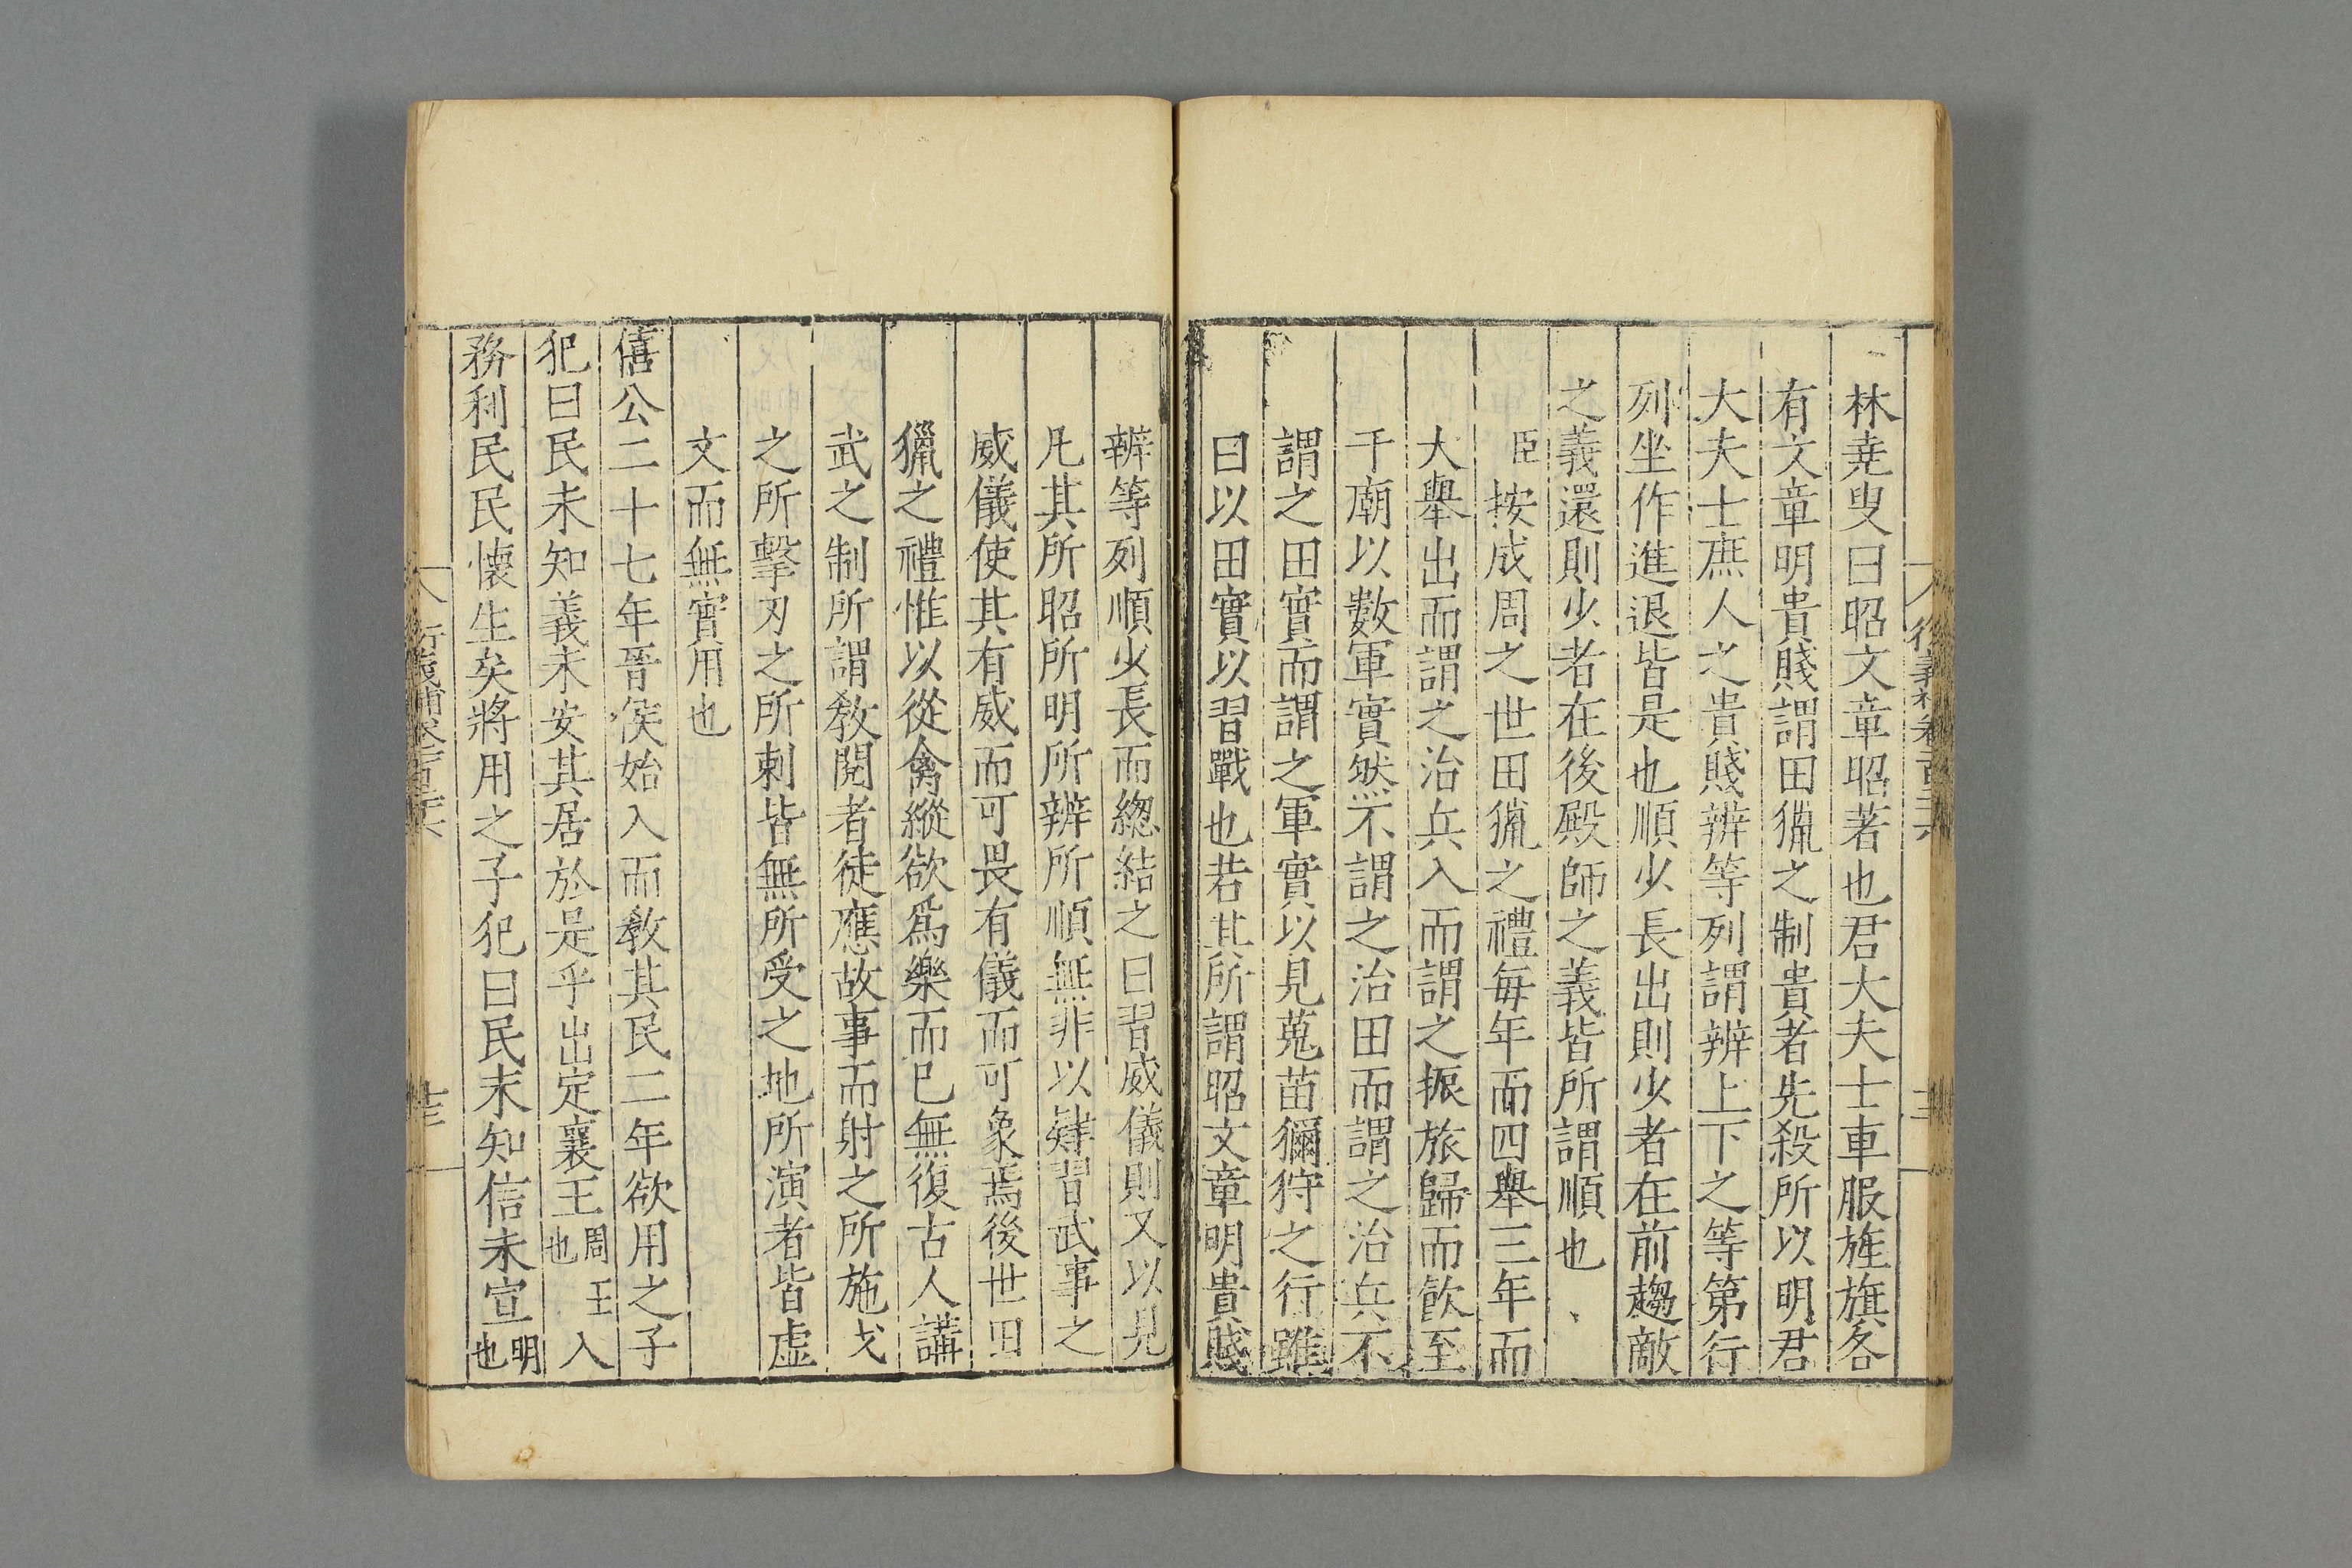 林堯叟曰昭文章昭著也君大夫士車服旌旗各
有文章明貴賤謂田獵之制貴者先殺所以明君
大夫士庶人之貴賤辨等列謂辨上下之等第行
列坐作進退皆是也順少長出則少者在前趨敵
之義還則少者在後殿師之義皆所謂順也
臣按成周之世田獵之禮每年而四舉三年而
大舉出而謂之治兵入而謂之振旅歸而飲至
于廟以數軍實然不謂之治田而謂之治兵不
謂之田實而謂之軍實以見蒐苗獮狩之行雖
曰以田實以習戰也若其所謂昭文章明貴賤
辨等列順少長而緫結之曰習威儀則又以見
凡其所昭所明所辨所順無非以肄習武事之
威儀使其有威而可畏有儀而可象焉後世田
獵之禮惟以從禽縱欲爲樂而已無復古人講
武之制所謂敎閱者徒應故事而射之所施戈
之所擊刃之所刺皆無所受之地所演者皆虛
文而無實用也
僖公二十七年晉侯始入而敎其民二年欲用之子
犯曰民未知義未安其居於是乎出定襄王周王也入
務利民民懷生矣將用之子犯曰民未知信未宣明也